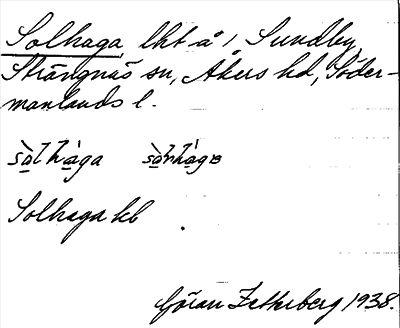 Solhaga lht å / Sundby,
Strängnäs sn, Åkers hd, Söder-
manlands l.
sòlhàga sòlhàgɐ
Solhaga kb
Göran Zetterberg 1938.